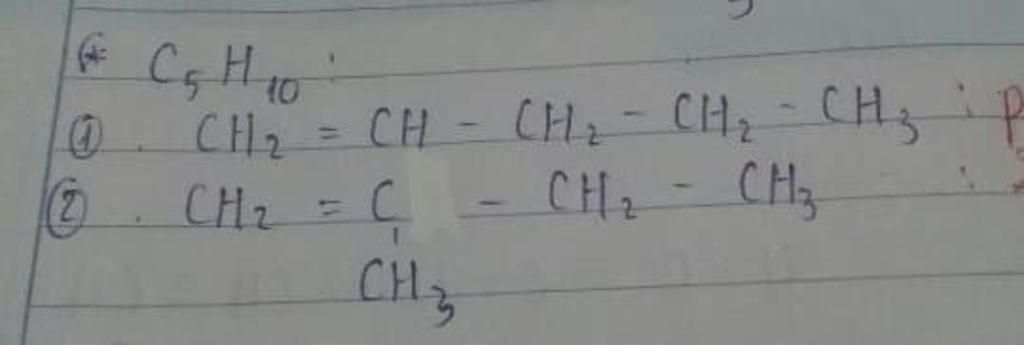 * C₅H₁₀ :
① . CH₂ = CH - CH₂ - CH₂ - CH₃ : p
② . CH₂ = C - CH₂ - CH₃ :
CH₃